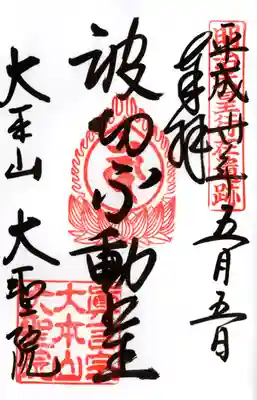 奉拝
平成廿 年五月五日
波切不動尊
大本山 大聖院
眞言宗
大本山
大聖院